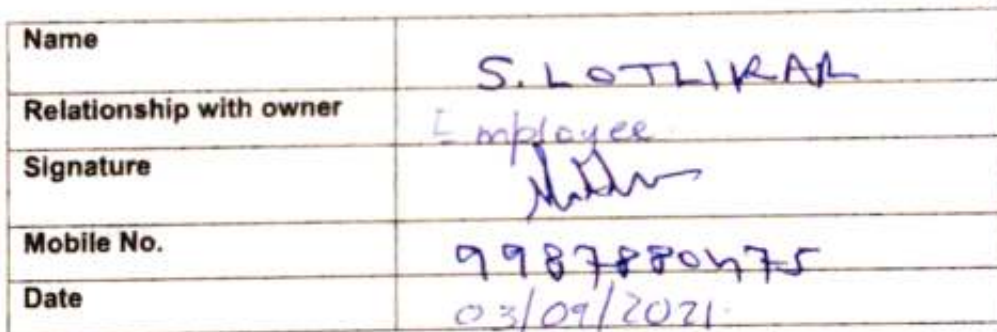 Name S. LOTLIKAR
Relationship with owner Employee
Signature
Mobile No. 9987880475
Date 03/09/2021